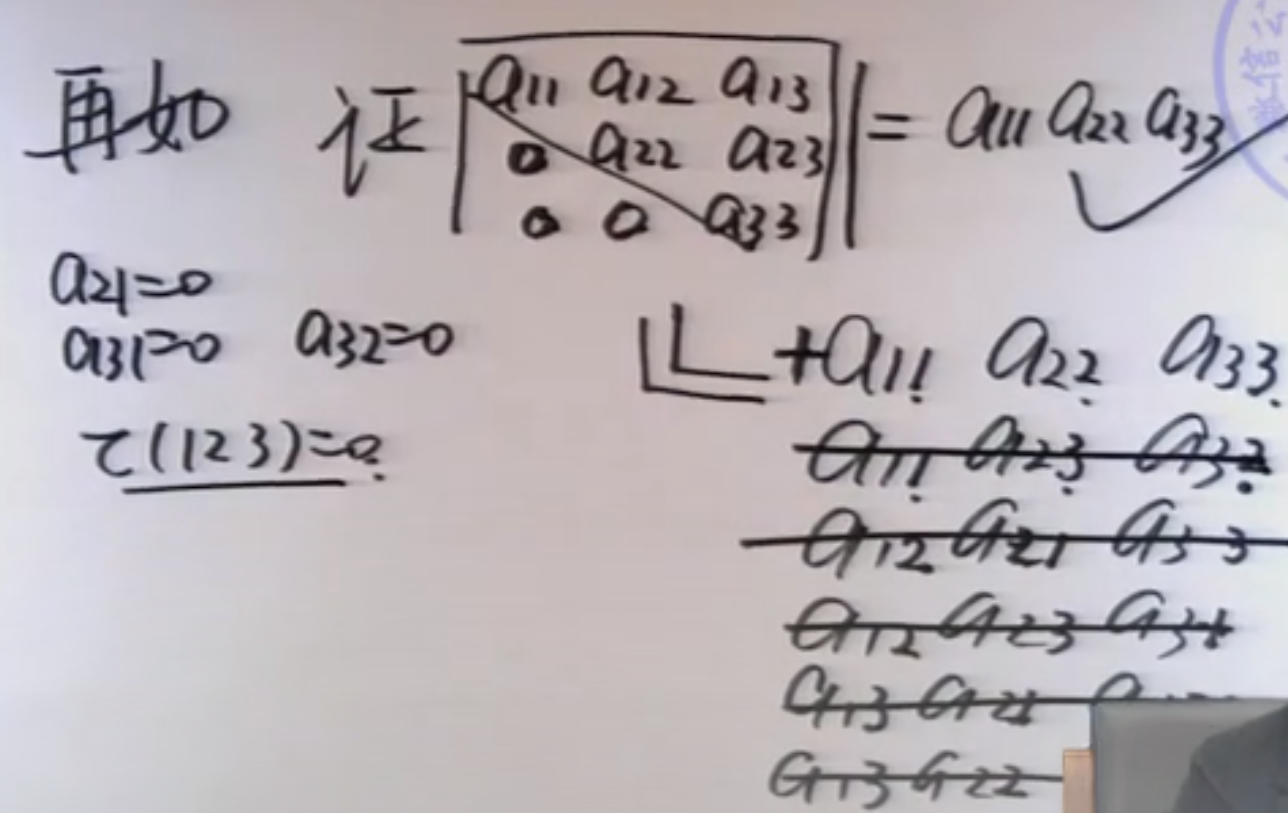 再如 证 | a11 a12 a13 | = a11 a22 a33
0 a22 a23
0 0 a33
a21=0
a31=0 a32=0
τ(123)=0
+a11 a22 a33
a11 a23 a32
a12 a21 a33
a12 a23 a31
a13 a21
a13 a22
信公